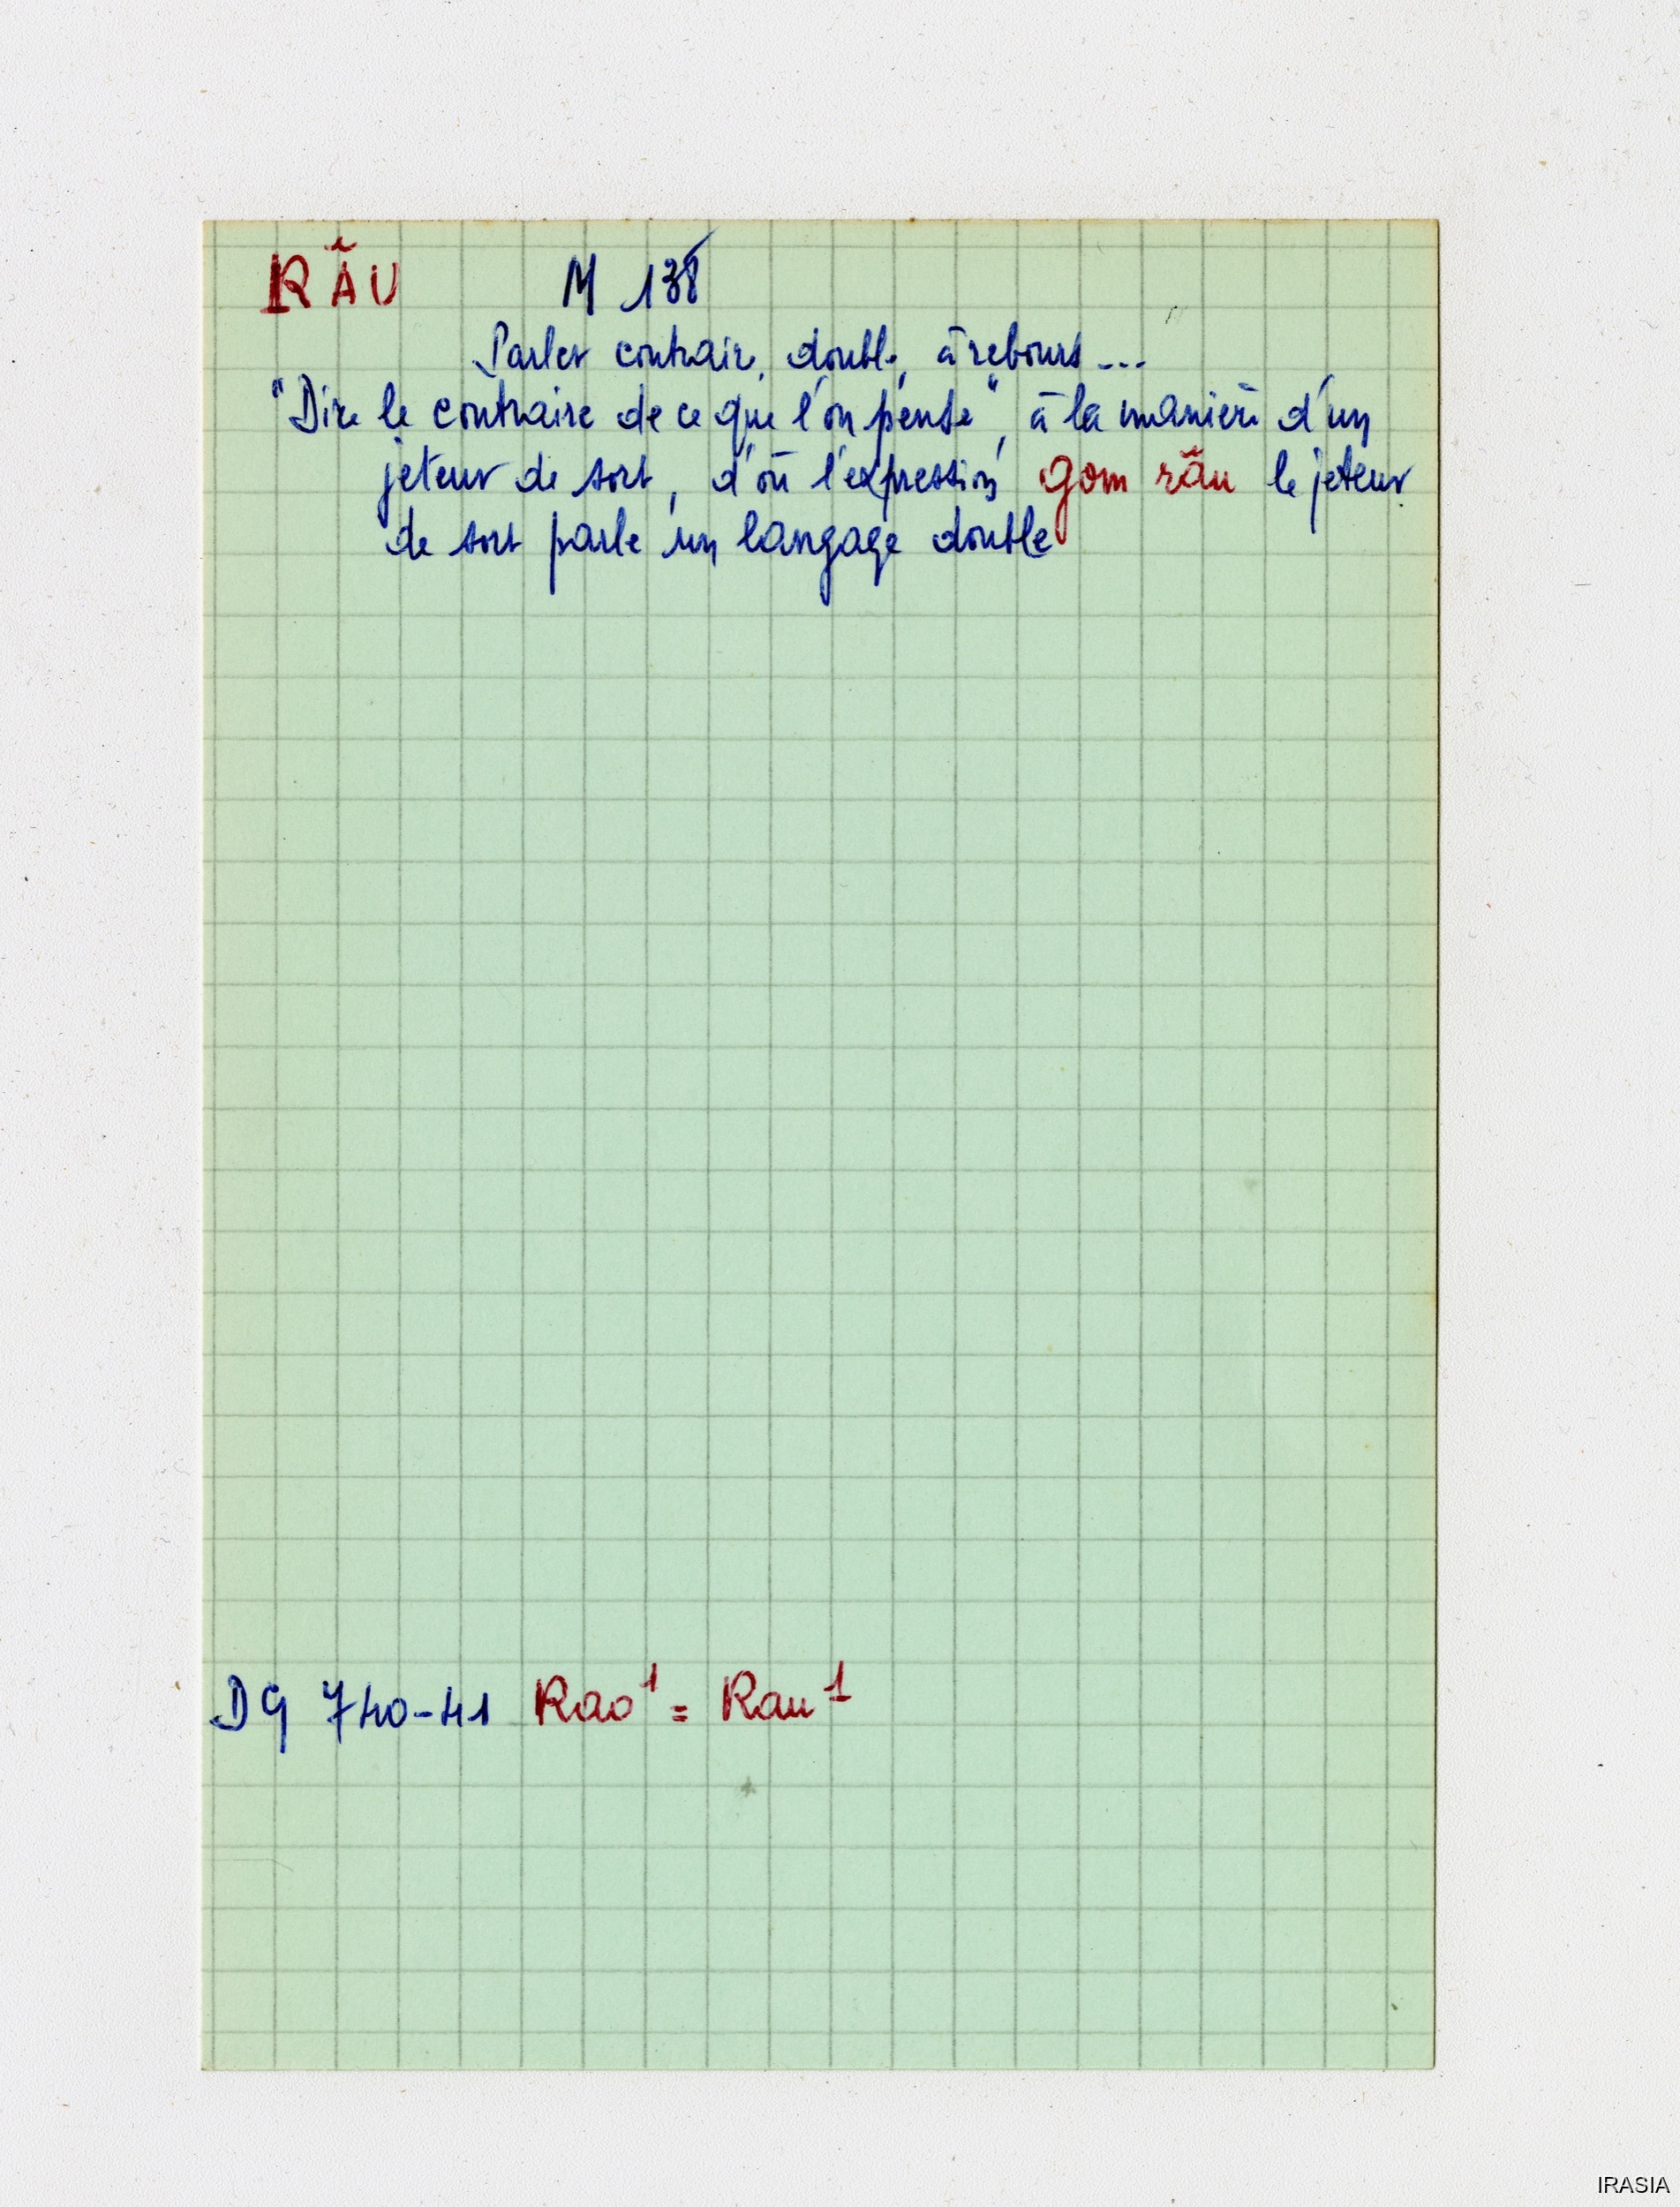 RÃU M 138
Parler contraire, double, à rebours...
"Dire le contraire de ce que l'on pense", à la manière d'un
jeteur de sort, d'où l'expression gom rãu le jeteur
de sort parle un langage double
DG 740-41 Rao¹ = Rau¹
IRASIA